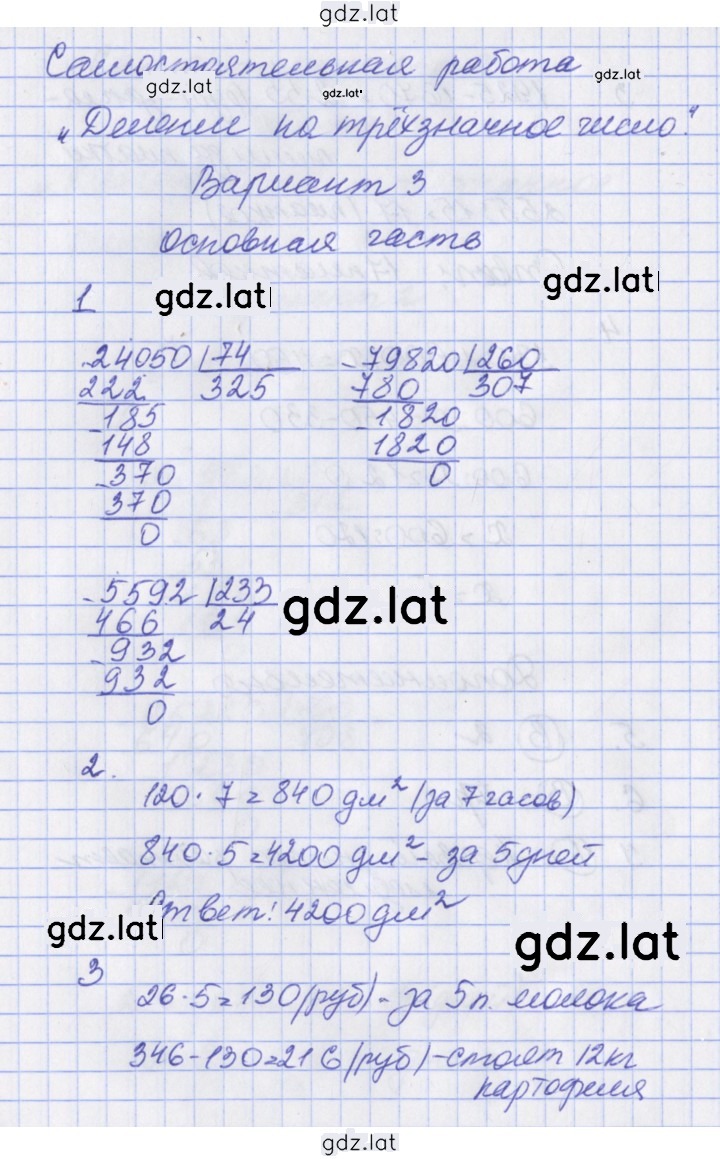 gdz.lat
Самостоятельная работа
gdz.lat gdz.lat gdz.lat
„Деление на трёхзначное число."
Вариант 3
основная часть
1 gdz.lat gdz.lat
- 24050 | 74 - 79820 | 260
222 325 780 307
- 185 - 1820
148 1820
- 370 0
370
0
- 5592 | 233 gdz.lat
466 24
- 932
932
0
2.
120 · 7 = 840 дм² (за 7 часов)
840 · 5 = 4200 дм² - за 5 дней
Ответ: 4200 дм²
gdz.lat gdz.lat
3
26 · 5 = 130 (руб) - за 5 п. молока
346 - 130 = 216 (руб) - стоят 12 кг
картофеля
gdz.lat